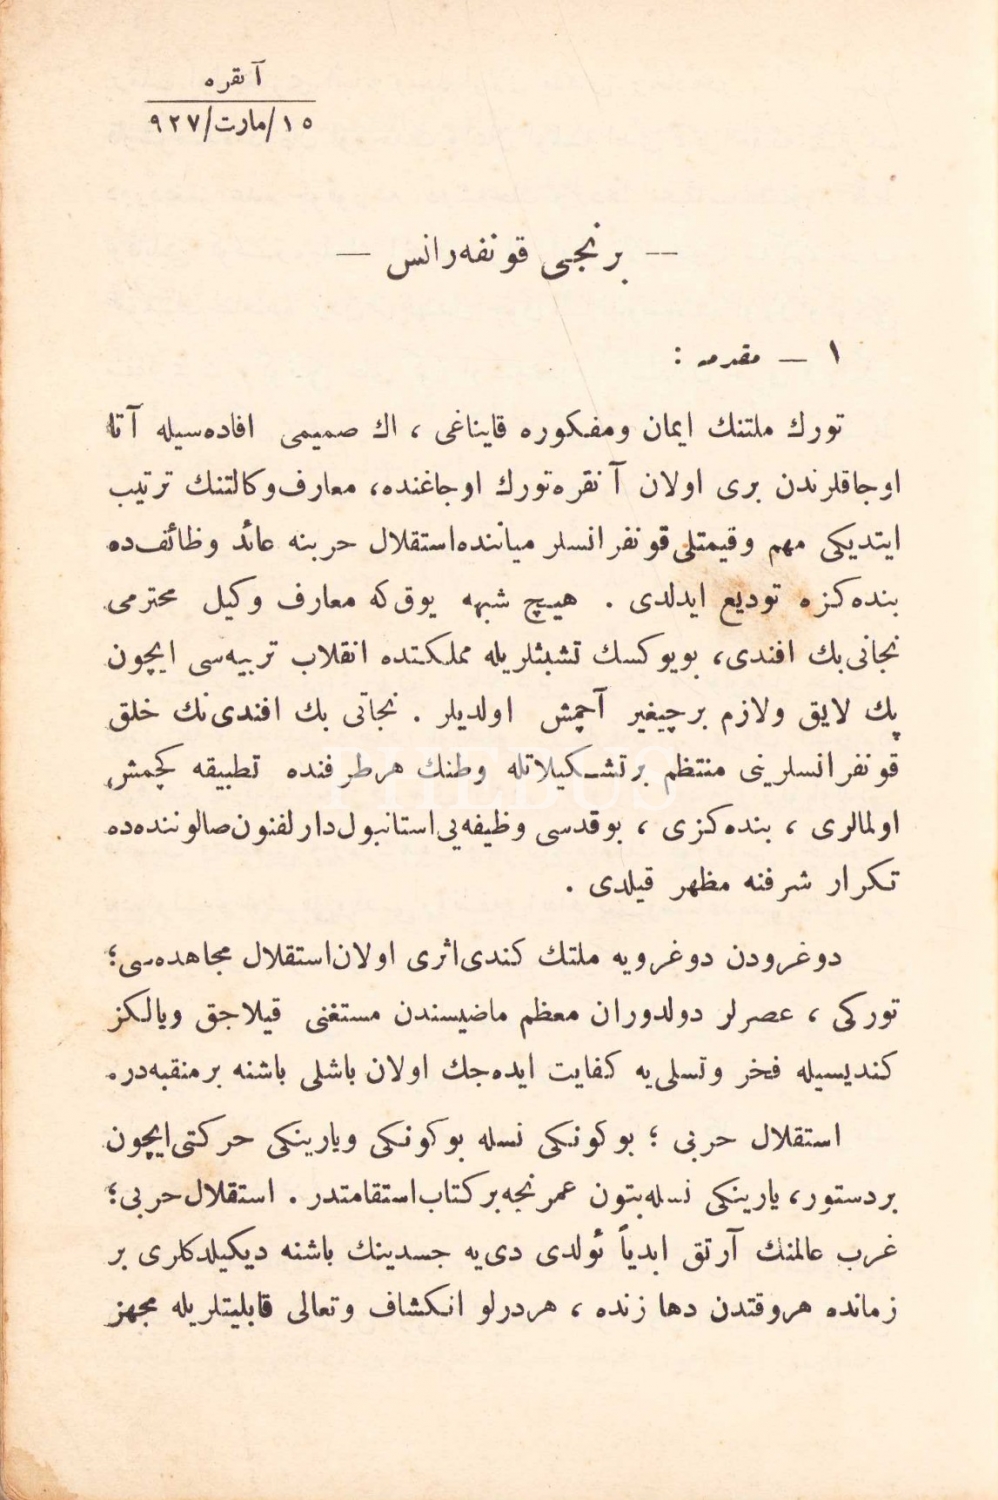 آنقره
١٥/مارت/٩٢٧
— برنجی قونفه‌رانس —
١ — مقدمه :
تورك ملتنك ایمان ومفكوره قایناغی ، اك صمیمی افاده‌سیله آتا
اوجاقلرندن بری اولان آنقره‌تورك اوجاغنده، معارف‌وكالتنك ترتیب
ایتدیكی مهم وقیمتلی‌قونفرانسلر میاننده‌استقلال حربنه عائد وظائف‌ده
بنده‌كزه تودیع ایدلدی . هیچ شبهه یوق‌كه معارف وكیل محترمی
نجاتی‌بك افندی، بویوكسك تشبثلریله مملكتده انقلاب تربیه‌سی ایچون
پك لایق ولازم برچیغیر آچمش اولدیلر . نجاتی بك افندی‌نك خلق
قونفرانسلرینی منتظم برتشكیلاتله وطنك هرطرفنده تطبیقه كچمش
اولمالری ، بنده‌كزی ، بوقدسی وظیفه‌یی‌استانبول‌دارلفنون‌صالوننده‌ده
تكرار شرفنه مظهر قیلدی .
دوغرودن دوغرویه ملتك كندی‌اثری اولان‌استقلال مجاهده‌سی؛
توركی ، عصرلر دولدوران معظم ماضیسندن مستغنی قیلاجق ویالكز
كندیسیله فخر وتسلی‌یه كفایت ایده‌جك اولان باشلی باشنه برمنقبه‌در.
استقلال حربی ؛ بوكونكی نسله بوكونكی ویارینكی حركتی‌ایچون
بردستور، یارینكی نسله‌بتون عمرنجه‌بركتاب‌استقامتدر . استقلال‌حربی؛
غرب عالمنك آرتق ابدیاً ئولدی دی‌یه جسدینك باشنه دیكیلدكلری بر
زمانده هروقتدن دها زنده ، هردرلو انكشاف وتعالی قابلیتلریله مجهز
PHEBUS